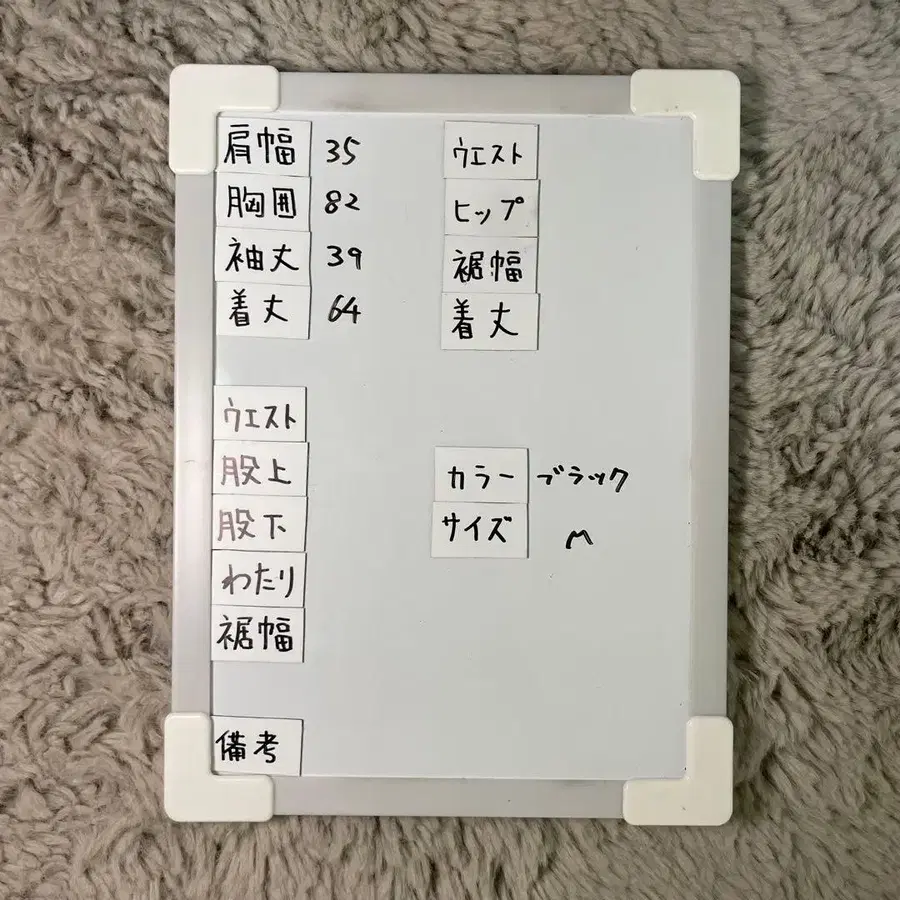 肩幅 35
胸囲 82
袖丈 39
着丈 64
ウエスト
ヒップ
裾幅
着丈
ウエスト
股上
股下
わたり
裾幅
カラー ブラック
サイズ M
備考